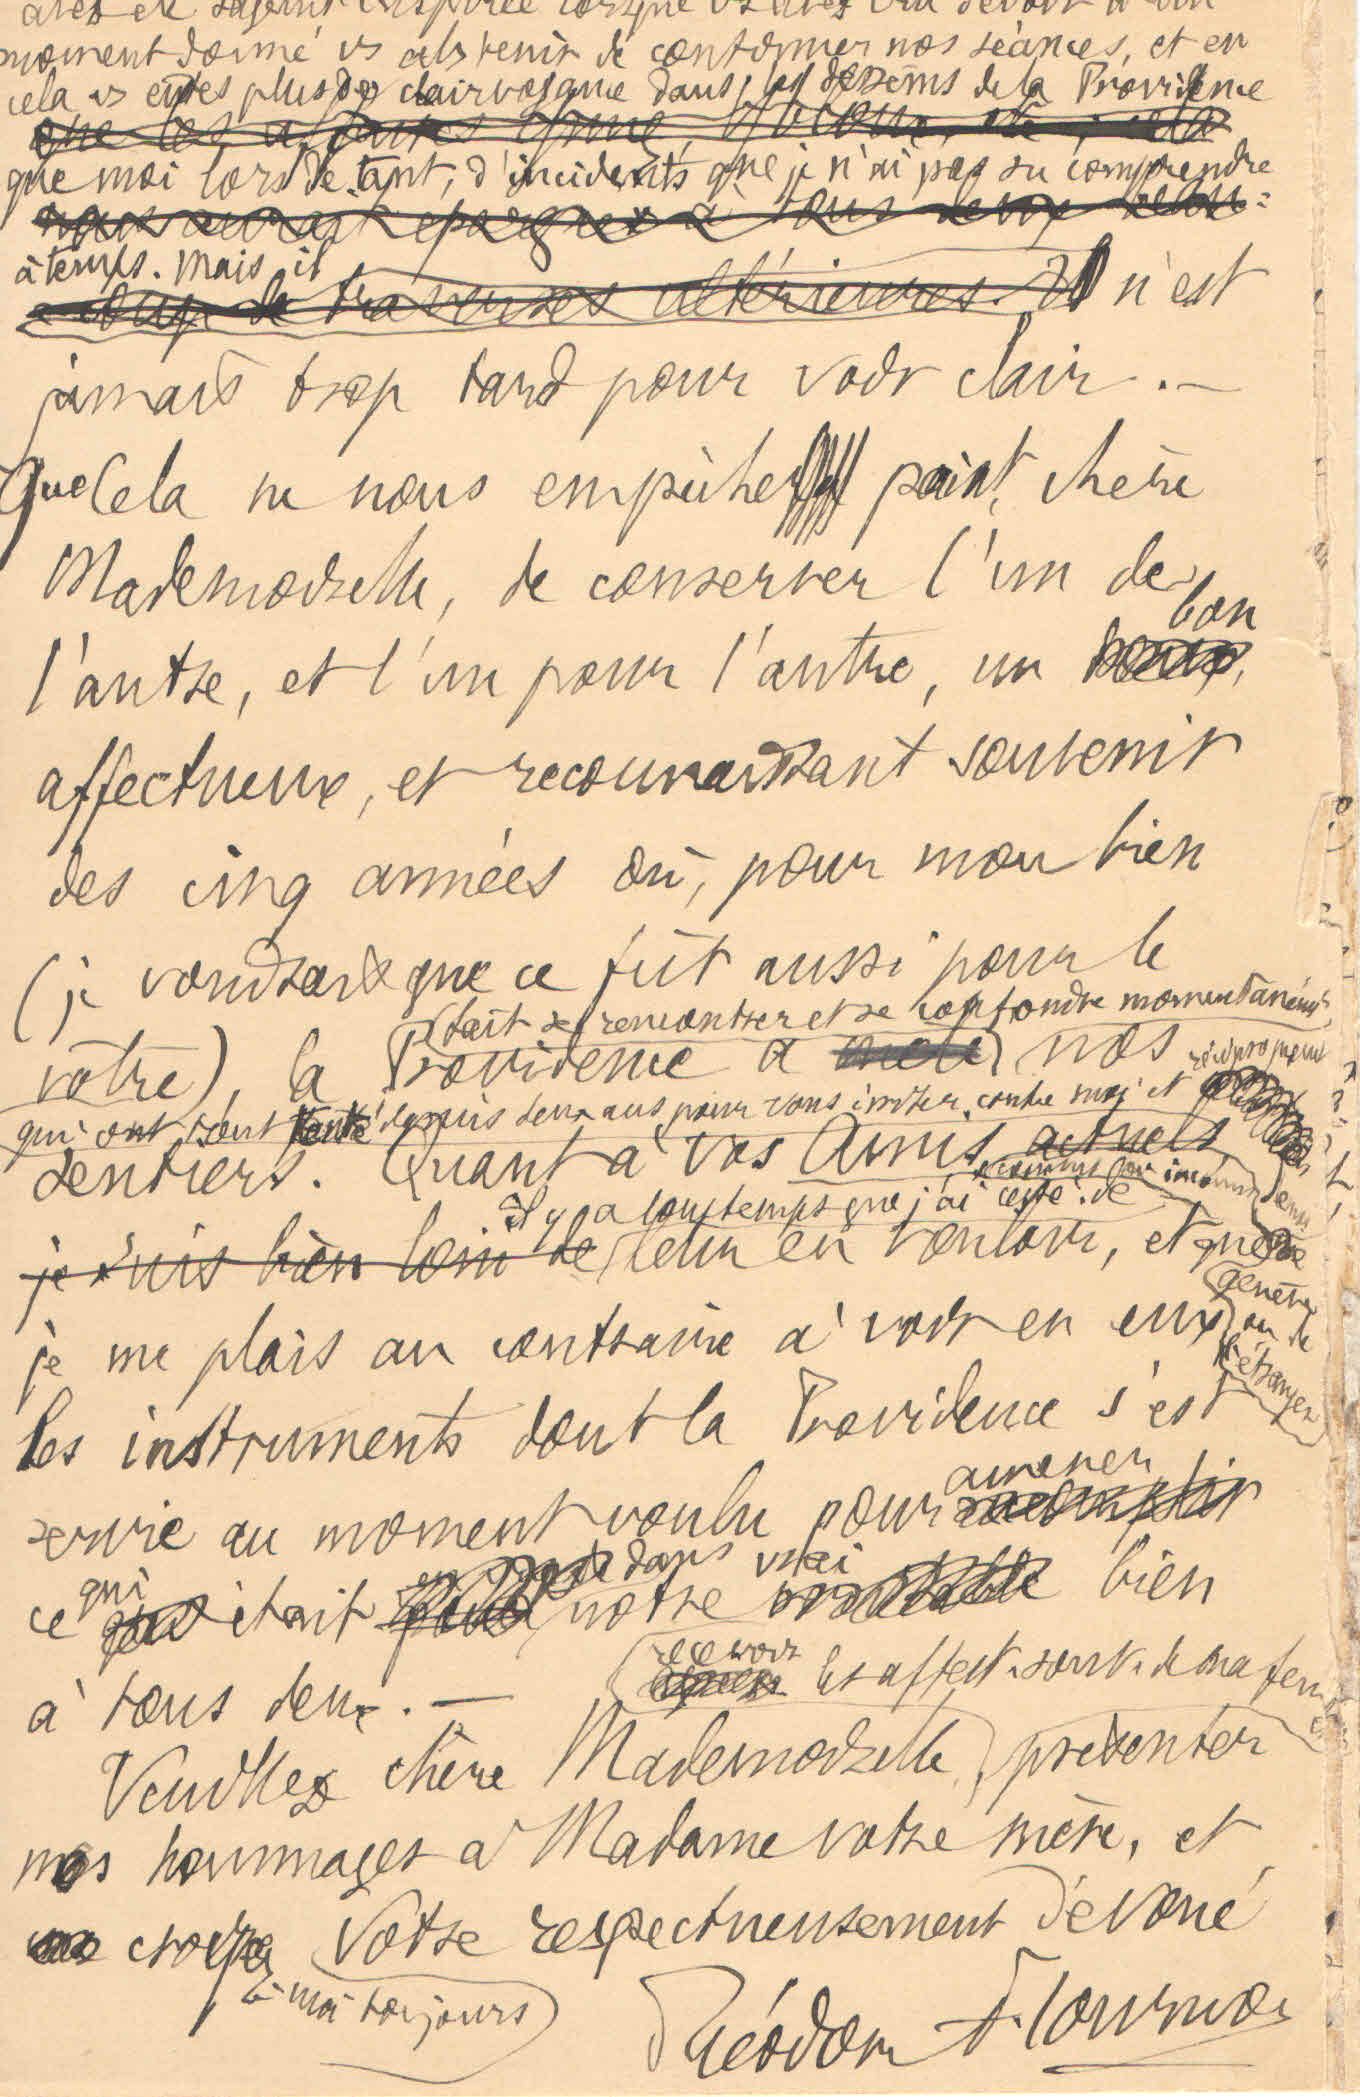 moment donné vs abstenir de continuer nos séances, et en
cela vs eûtes plus de clairvoyance dans les desseins de la Providence
que moi lors de tant d'incidents que je n'ai pas su comprendre
à temps. Mais il
coup de traverses ultérieures. Il n'est
jamais trop tard pour voir clair. —
Que Cela ne nous empêche point, chère
Mademoiselle, de conserver l'un de
bon
l'autre, et l'un pour l'autre, un
affectueux, et reconnaissant souvenir
des cinq années où, pour mon bien
(je voudrais que ce fût aussi pour le
fait se rencontrer et se confondre momentaném^t
vôtre), la Providence a mêlé nos
qui ont tant tenté depuis deux ans pour vous irriter contre moi et
sentiers. Quant à vos Amis actuels,
connus ou inconnus
il y a longtemps que j'ai cessé de
je suis bien loin de leur en vouloir, et que
Genève
je me plais au contraire à voir en eux
ou de
l'étranger
les instruments dont la Providence s'est
amener
servie au moment voulu pour accomplir
qui dans vrai
ce que était pour notre véritable bien
à tous deux. —
recevoir les affect. souv. de ma femme
Veuillez chère Mademoiselle, présenter
nos hommages à Madame votre mère, et
me croire Votre respectueusement dévoué
à moi toujours
Théodore Flournoy